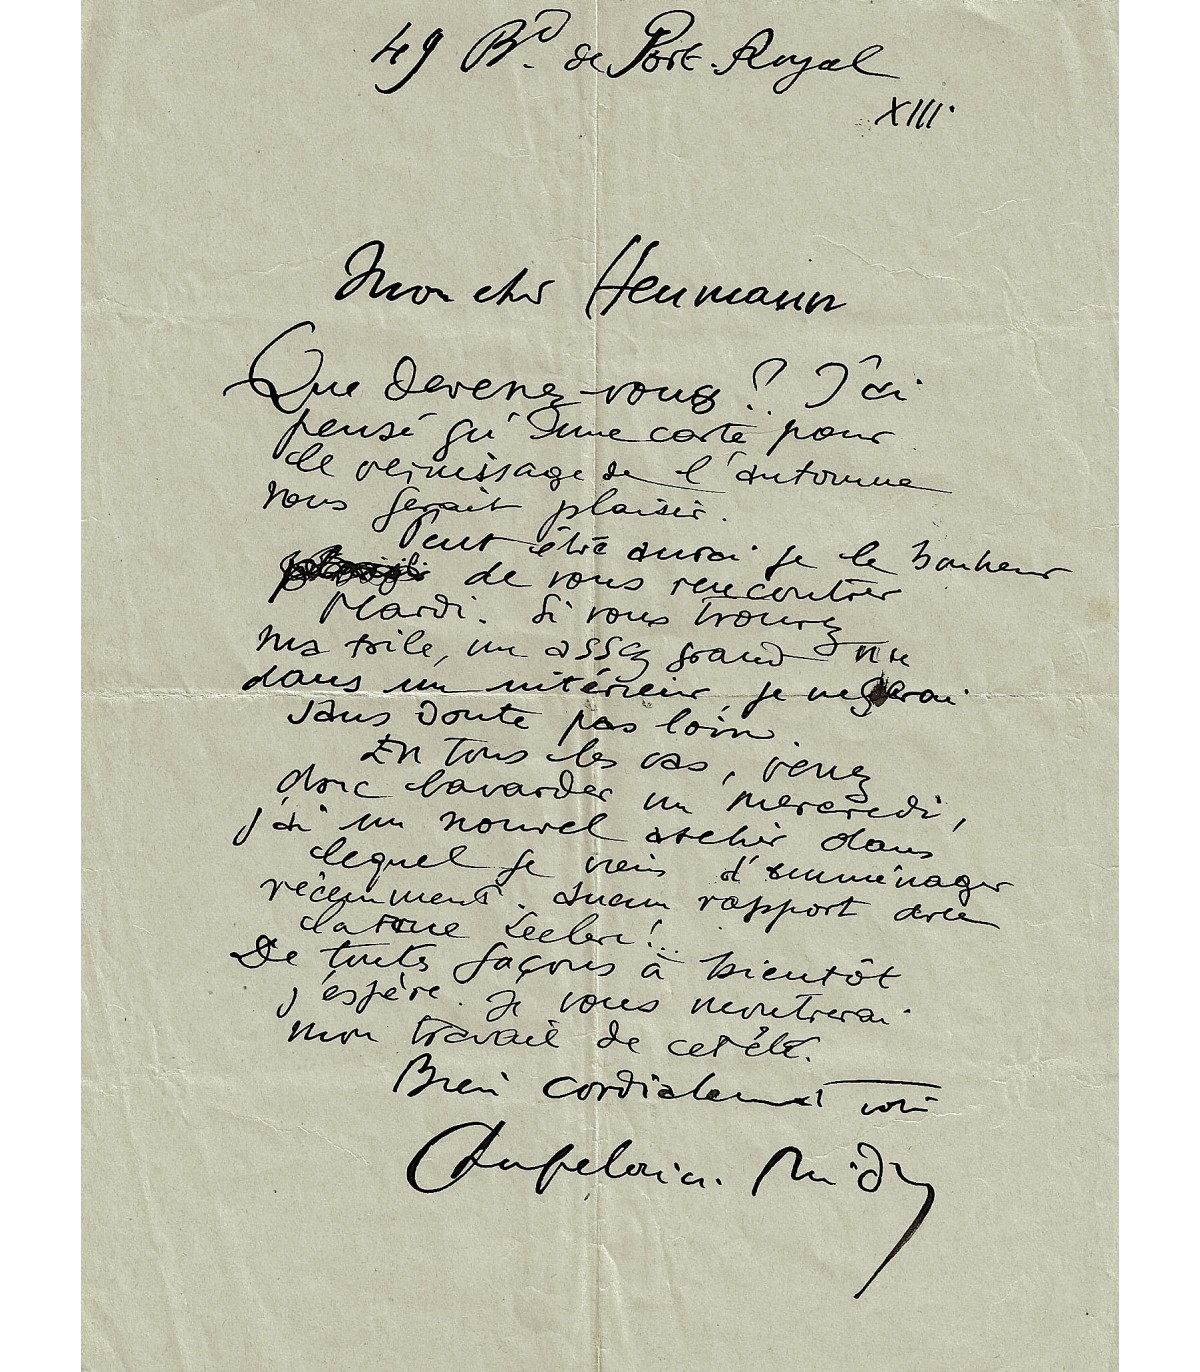 49 Bd. de Port-Royal
XIII.
Mon cher Heumann
Que devenez-vous ? J'ai
pensé qu'une carte pour
le vernissage de l'automne
vous ferait plaisir.
Peut être aurai je le bonheur
de vous rencontrer
Mardi. Si vous trouvez
ma toile, un assez grand nu
dans un intérieur, je ne serai
sans doute pas loin.
En tous les cas, venez
donc bavarder un mercredi,
j'ai un nouvel atelier dans
lequel je viens d'emménager
récemment. Aucun rapport avec
la rue Leclerc !..
De toutes façons à bientôt
j'espère. Je vous montrerai
mon travail de cet été.
Bien cordialement votre
Midy